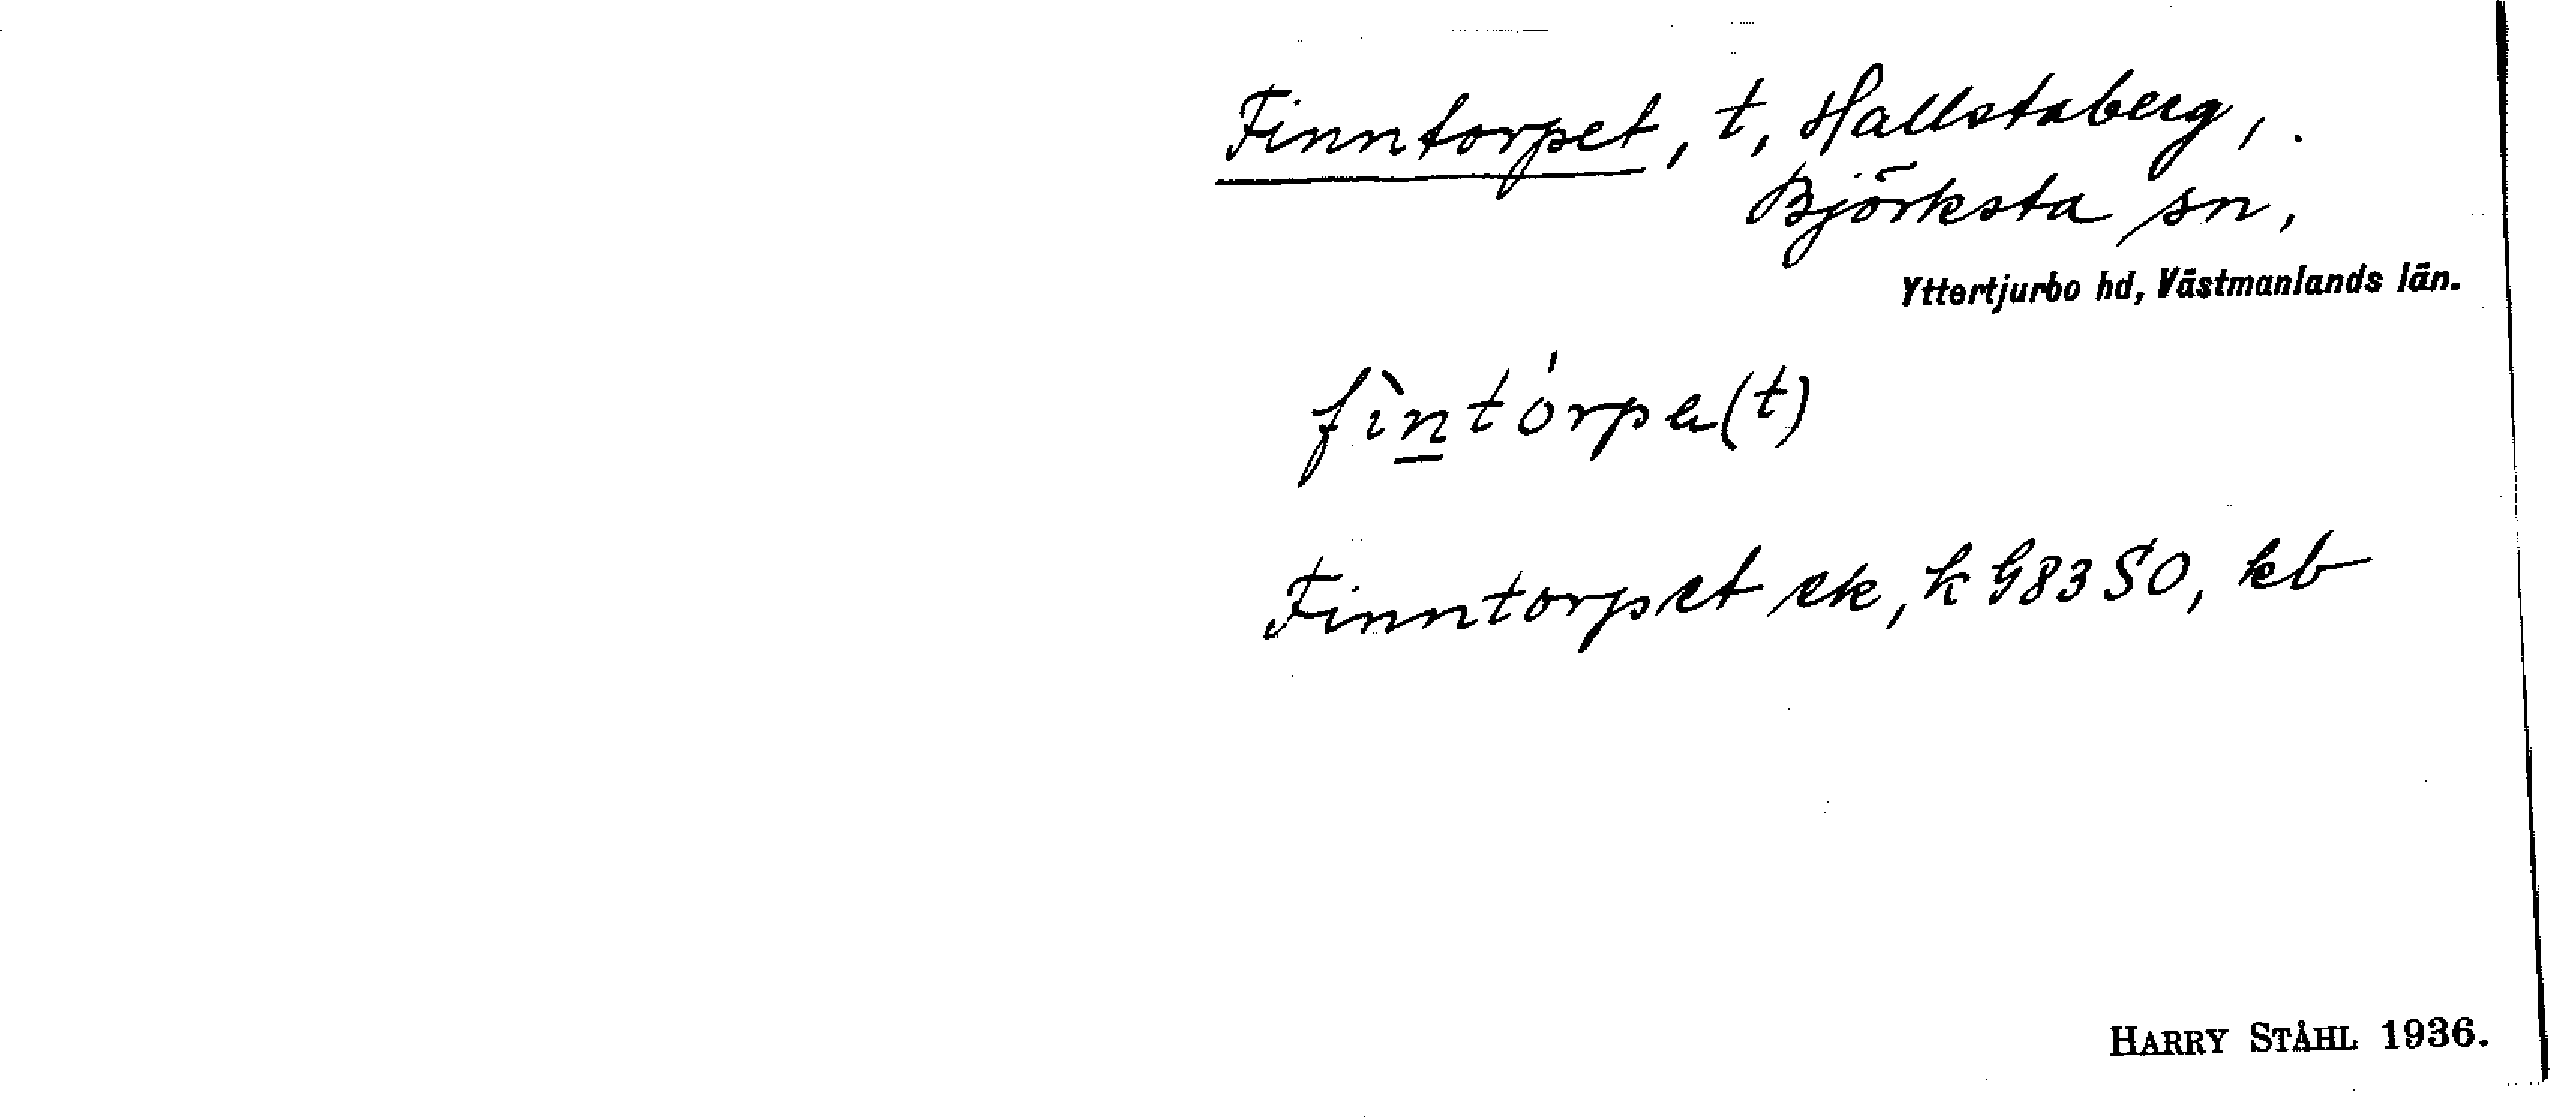 Finntorpet, t, Hallstaberg,
Björksta sn,
Yttertjurbo hd, Västmanlands län.
fìntórpa(t)
Finntorpet ek, k G83SO, kb
HARRY STÅHL 1936.